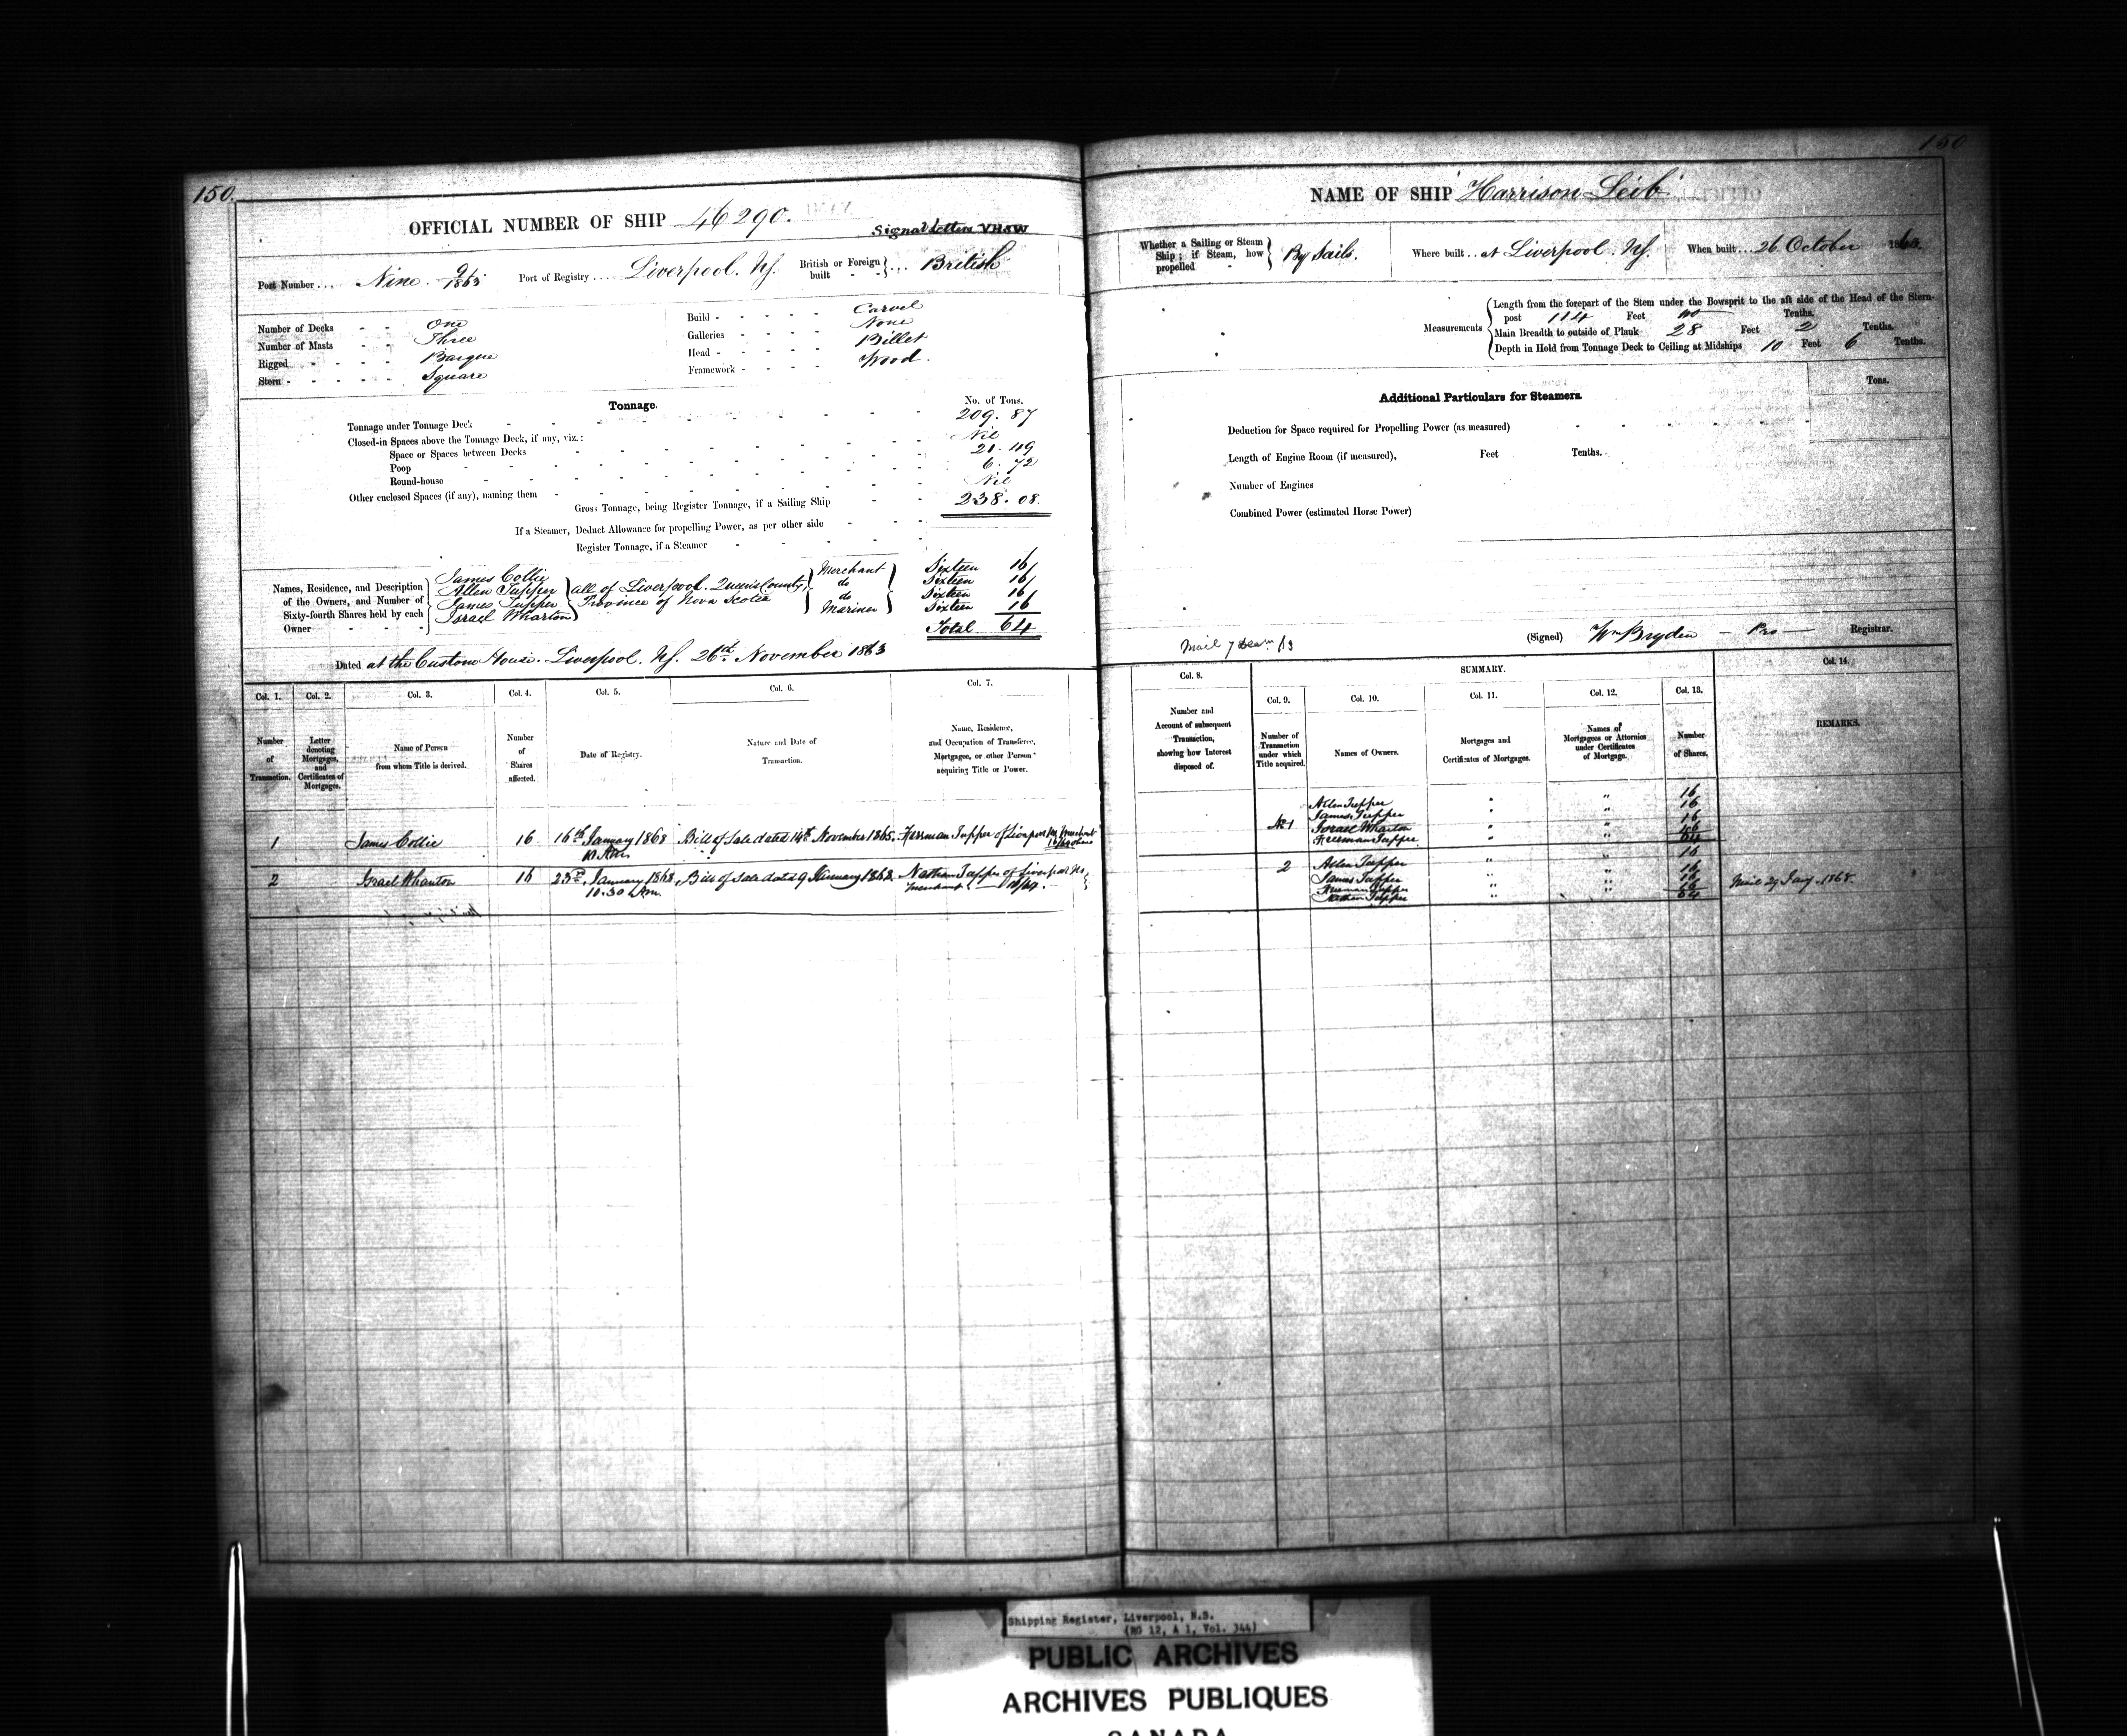 150.
OFFICIAL NUMBER OF SHIP 46290.
Signal Letters VHSW
Port Number . . . Nine. 9/1863 Port of Registry . . . . Liverpool. NS. British or Foreign built - - } . . . British
Number of Decks - - One
Number of Masts - - Three
Rigged - - - - - Barque
Stern - - - - - - Square
Build - - - - - - Carvel
Galleries - - - - - None
Head - - - - - - Billet
Framework - - - - Wood
Tonnage. No. of Tons.
Tonnage under Tonnage Deck - - 209. 87
Closed-in Spaces above the Tonnage Deck, if any, viz.:
Space or Spaces between Decks - - Nil
Poop - - 21. 49
Round-house - - 6. 72
Other enclosed Spaces (if any), naming them - - Nil
Gross Tonnage, being Register Tonnage, if a Sailing Ship - - 238. 08.
If a Steamer, Deduct Allowance for propelling Power, as per other side - - -
Register Tonnage, if a Steamer - - - -
Names, Residence, and Description of the Owners, and Number of Sixty-fourth Shares held by each Owner - - -
James Collie Merchant Sixteen 16/
Allen Tupper } all of Liverpool. Queens County, do Sixteen 16/
James Tupper } Province of Nova Scotia do Sixteen 16/
Israel Wharton Mariner Sixteen 16
Total 64
Dated at the Custom House. Liverpool. NS. 26th. November 1863
Col. 1. Col. 2. Col. 3. Col. 4. Col. 5. Col. 6. Col. 7.
Number of Transaction.
Letter denoting Mortgages, and Certificates of Mortgages.
Name of Person from whom Title is derived.
Number of Shares affected.
Date of Registry.
Nature and Date of Transaction.
Name, Residence, and Occupation of Transferee, Mortgagee, or other Person acquiring Title or Power.
1 James Collie 16 16th January 1868 Bill of Sale dated 14th November 1865. Freeman Tupper of Liverpool NS Merchant
2 Israel Wharton 16 23rd January 1868, Bill of Sale dated 9 January 1868. Nathan Tupper of Liverpool NS
10.30 A m. Merchant
150
NAME OF SHIP Harrison Leib
Whether a Sailing or Steam Ship; if Steam, how propelled - } By Sails. Where built . . at Liverpool. NS. When built . . . 26 October 1863.
Measurements
Length from the forepart of the Stem under the Bowsprit to the aft side of the Head of the Stern-
post 114 Feet no Tenths.
Main Breadth to outside of Plank 28 Feet 2 Tenths.
Depth in Hold from Tonnage Deck to Ceiling at Midships 10 Feet 6 Tenths.
Additional Particulars for Steamers. Tons.
Deduction for Space required for Propelling Power (as measured)
Length of Engine Room (if measured), Feet Tenths.
Number of Engines
Combined Power (estimated Horse Power)
(Signed) Wm Bryden - Pro - Registrar.
Col. 8. SUMMARY. Col. 14.
Col. 9. Col. 10. Col. 11. Col. 12. Col. 13.
Number and Account of subsequent Transaction, showing how Interest disposed of.
Number of Transaction under which Title acquired.
Names of Owners.
Mortgages and Certificates of Mortgages.
Names of Mortgagees or Attornies under Certificates of Mortgage.
Number of Shares.
REMARKS.
Allen Tupper " " 16
James Tupper " " 16
No 1 Israel Wharton " " 16
Freeman Tupper " " 16
64
2 Allen Tupper " " 16
James Tupper " " 16
Freeman Tupper " " 16
Nathan Tupper " " 16
64
Mail 29 Jany. 1868.
Shipping Register, Liverpool, N.S.
(RG 12, A 1, Vol. 344)
PUBLIC ARCHIVES
ARCHIVES PUBLIQUES
CANADA